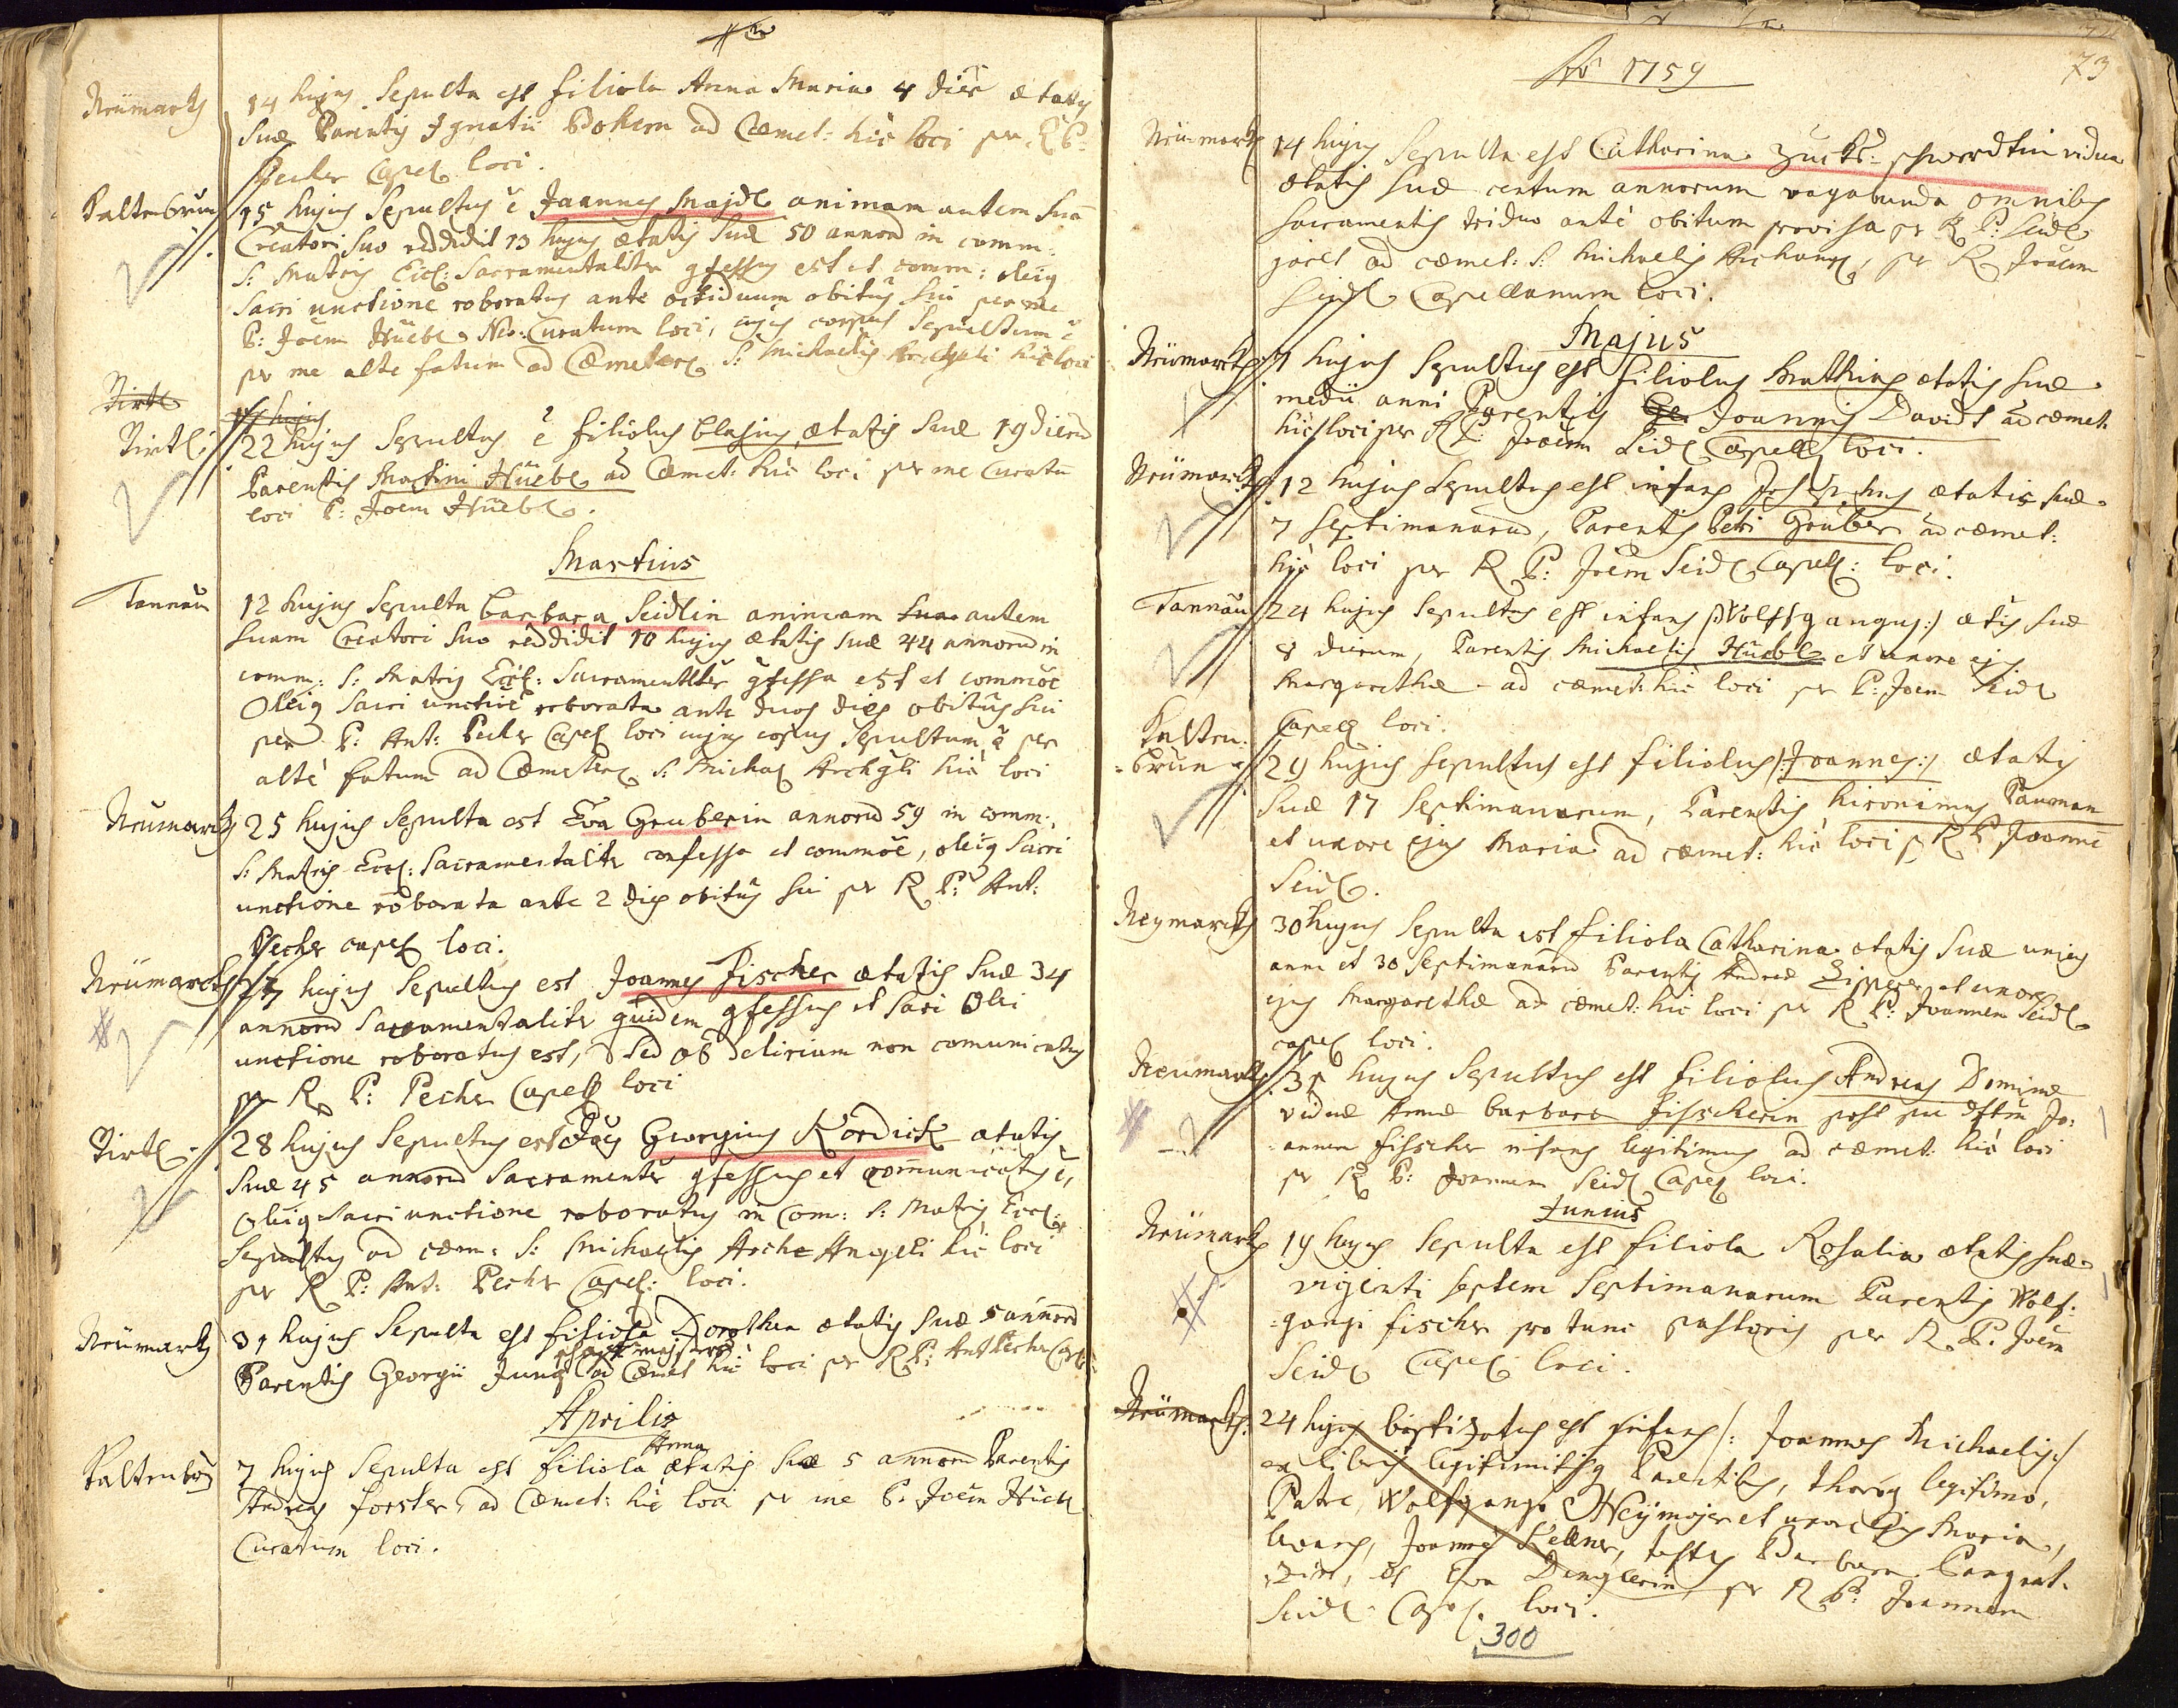 Neümarck 14 hujus Sepulta est filiola Anna Maria 4 dieru ætatis
suæ Parentis Ignatii Böhem ad Cæmet: hic loci per R P:
Pecher Capel loci.
Kaltenbrun 15 hujus Sepultus ē Joannes Majdl animam autem suā
Creatori suo reddidit 13 hujus ætatis suæ 50 annorū in comm:
S: Matris Eccl: Sacramentaliter gfessus est et comm: oleiq
sacri unctione roboratus ante octiduum obitus sui per me
P: Joēm Hüebl Neo-Curatum loci, cujus corpus Sepultum ē
per me alte fatum ad Cæmeter S: Michaelis Archgeli hic loci
Tirtl hujus
Tirtl: 22 hujus Sepultus ē filiolus Blasius ætatis suæ 19 dierū
Parentis Martini Hüebl ad Cæmet: hic loci per me Curatū
loci P: Joem Hüebl.
Martius
Tannau 12 hujus Sepulta Barbara Seidlin animam sua autem
suam Creatori suo reddidit 10 hujus ætatis suæ 44 annorū in
comm: S: Matris Eccl: Sacramentlter gfessa est et commōē
Oleiq Sacri unctiōe roborata ante duos dies obitus sui
per P: Ant: Pecher Capel loci cujus corpus Sepultum ē per
alte fatum ad Cæmeter S: Michael Archgli hic loci
Neumarck 25 hujus Sepulta est Eva Gruberin annorū 59 in comm:
S: Matris Eccl: Sacramentaliter confessa et commōē, oleiq Sacri
unctione roborata ante 2 dies obitus sui per R P: Ant:
Pecher capel loci.
Neümarck hujus Sepultus est Joannes Fischer ætatis suæ 34
annorū Sacramentaliter quidem gfessus et Sacri Olei
unctione roboratus est, sed ob delirium non comunicatus
per R P: Pecher Capel loci
Tirtl 28 hujus Sepultus est Georgius Kordick ætatis
suæ 45 annorū Sacramenter gfessus et communicatus ē,
Oleiq Sacri unctione roboratus in Com: S: Matris Eccl:
Sepultus ad cœm: S: Michaelis Arche Angeli hic loci
per R P: Ant: Pecher Capel: loci.
Neümarck 31 hujus Sepulta est filiola Dorothea ætatis suæ 5 annorū
Parentis Georgii Jung ad Cæmet hic loci per R P: Ant Pecher Cap
Aprilis
Anna
Kaltenbru 7 hujus Sepulta est filiola ætatis suæ 5 annorū Parentis
Andreas Forster, ad Cæmet: hic loci per me P. Joēm Hüebl
Curatum loci.
73
Aō 1759
Neümarck 14 hujus Sepulta est Catharina schwerdtin vidua
ætatis suæ centum annorum vagabunda omnibus
Sacramentis triduo ante obitum provisa per R P: Seidl
jacet ad cæmet: S: Michaelis Archang, per R Joaēm
Seidl Capellanum loci.
Majus
Neümarck 7 hujus Sepultus est filiolus Mathias ætatis suæ
medii anni Parentis Ge Joannis Davidt ad cæmet.
hic loci per R P: Joaēm Seidl Capell loci.
Neümarck 12 hujus Sepultus est infans Josephus ætatis suæ
7 Septimanarū, Parentis Petri Gruber ad cæmet:
hic loci per R P: Joēm Seidl Capell: loci.
Tannau 24 hujus Sepultus est infans /:Wolffgangus:/ ætis suæ
8 dierum, Parentis Michaelis Hüebl et uxore ejus
Margarethæ ad cæmet: hic loci per P: Joem Seidl
Capell loci.
Kalten:
=brun 29 hujus Sepultus est filiolus /:Joannes:/ ætatis
suæ 17 Septimanarum, Parentis Hironimus Pauman
et uxore ejus Maria ad cæmet: hic loci p R P Joanne
Seidl.
Neymarck 30 hujus Sepulta est filiola Catharina ætatis suæ unius
anni et 30 Septimanarū Parentis Andreæ Zipperer et uxore
ejus Margarethæ ad cæmet: hic loci per R P: Joannem Seidl
capel loci.
Neumarck 31 hujus Sepultus est filiolus Andreas Dominæ
viduæ Annæ Barbara Fisscherin post sui dftm Jo:
annem Fisscher infans legitimus ad cæmet: hic loci
per R P: Joannem Seidl Capel loci.
Junius
Neümarck 19 hujus Sepulta est filiola Rosalia ætatis suæ
viginti septem Septimanarum Parentis Wolf:
=gangi Fischer pro tunc pastoris per R. P. Joēm
Seidl Capel loci.
Neümarck: 24 hujus baptizatus est infans /: Joannes Michaelis:/
ex liberis legitimisq Parentibus, thoroq legitimo,
Patre, Wolfgango Neÿmajer et uxore ejus Maria,
levans, Joannes Kellner, testes Barbara
et Eva Denglerin per R P: Joannem
Seidl Capel. loci.
300